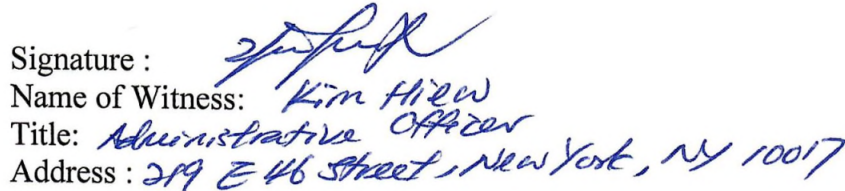 Signature :
Name of Witness: Kim Hiew
Title: Administrative Officer
Address : 219 E 46 Street, New York, NY 10017